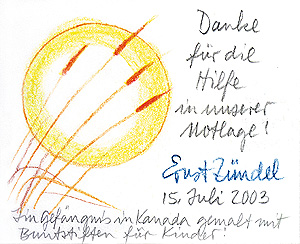 Danke
für die
Hilfe
in unserer
Notlage!
Ernst Zündel
15. Juli 2003
Im Gefängnis in Kanada gemalt mit
Buntstiften für Kinder!